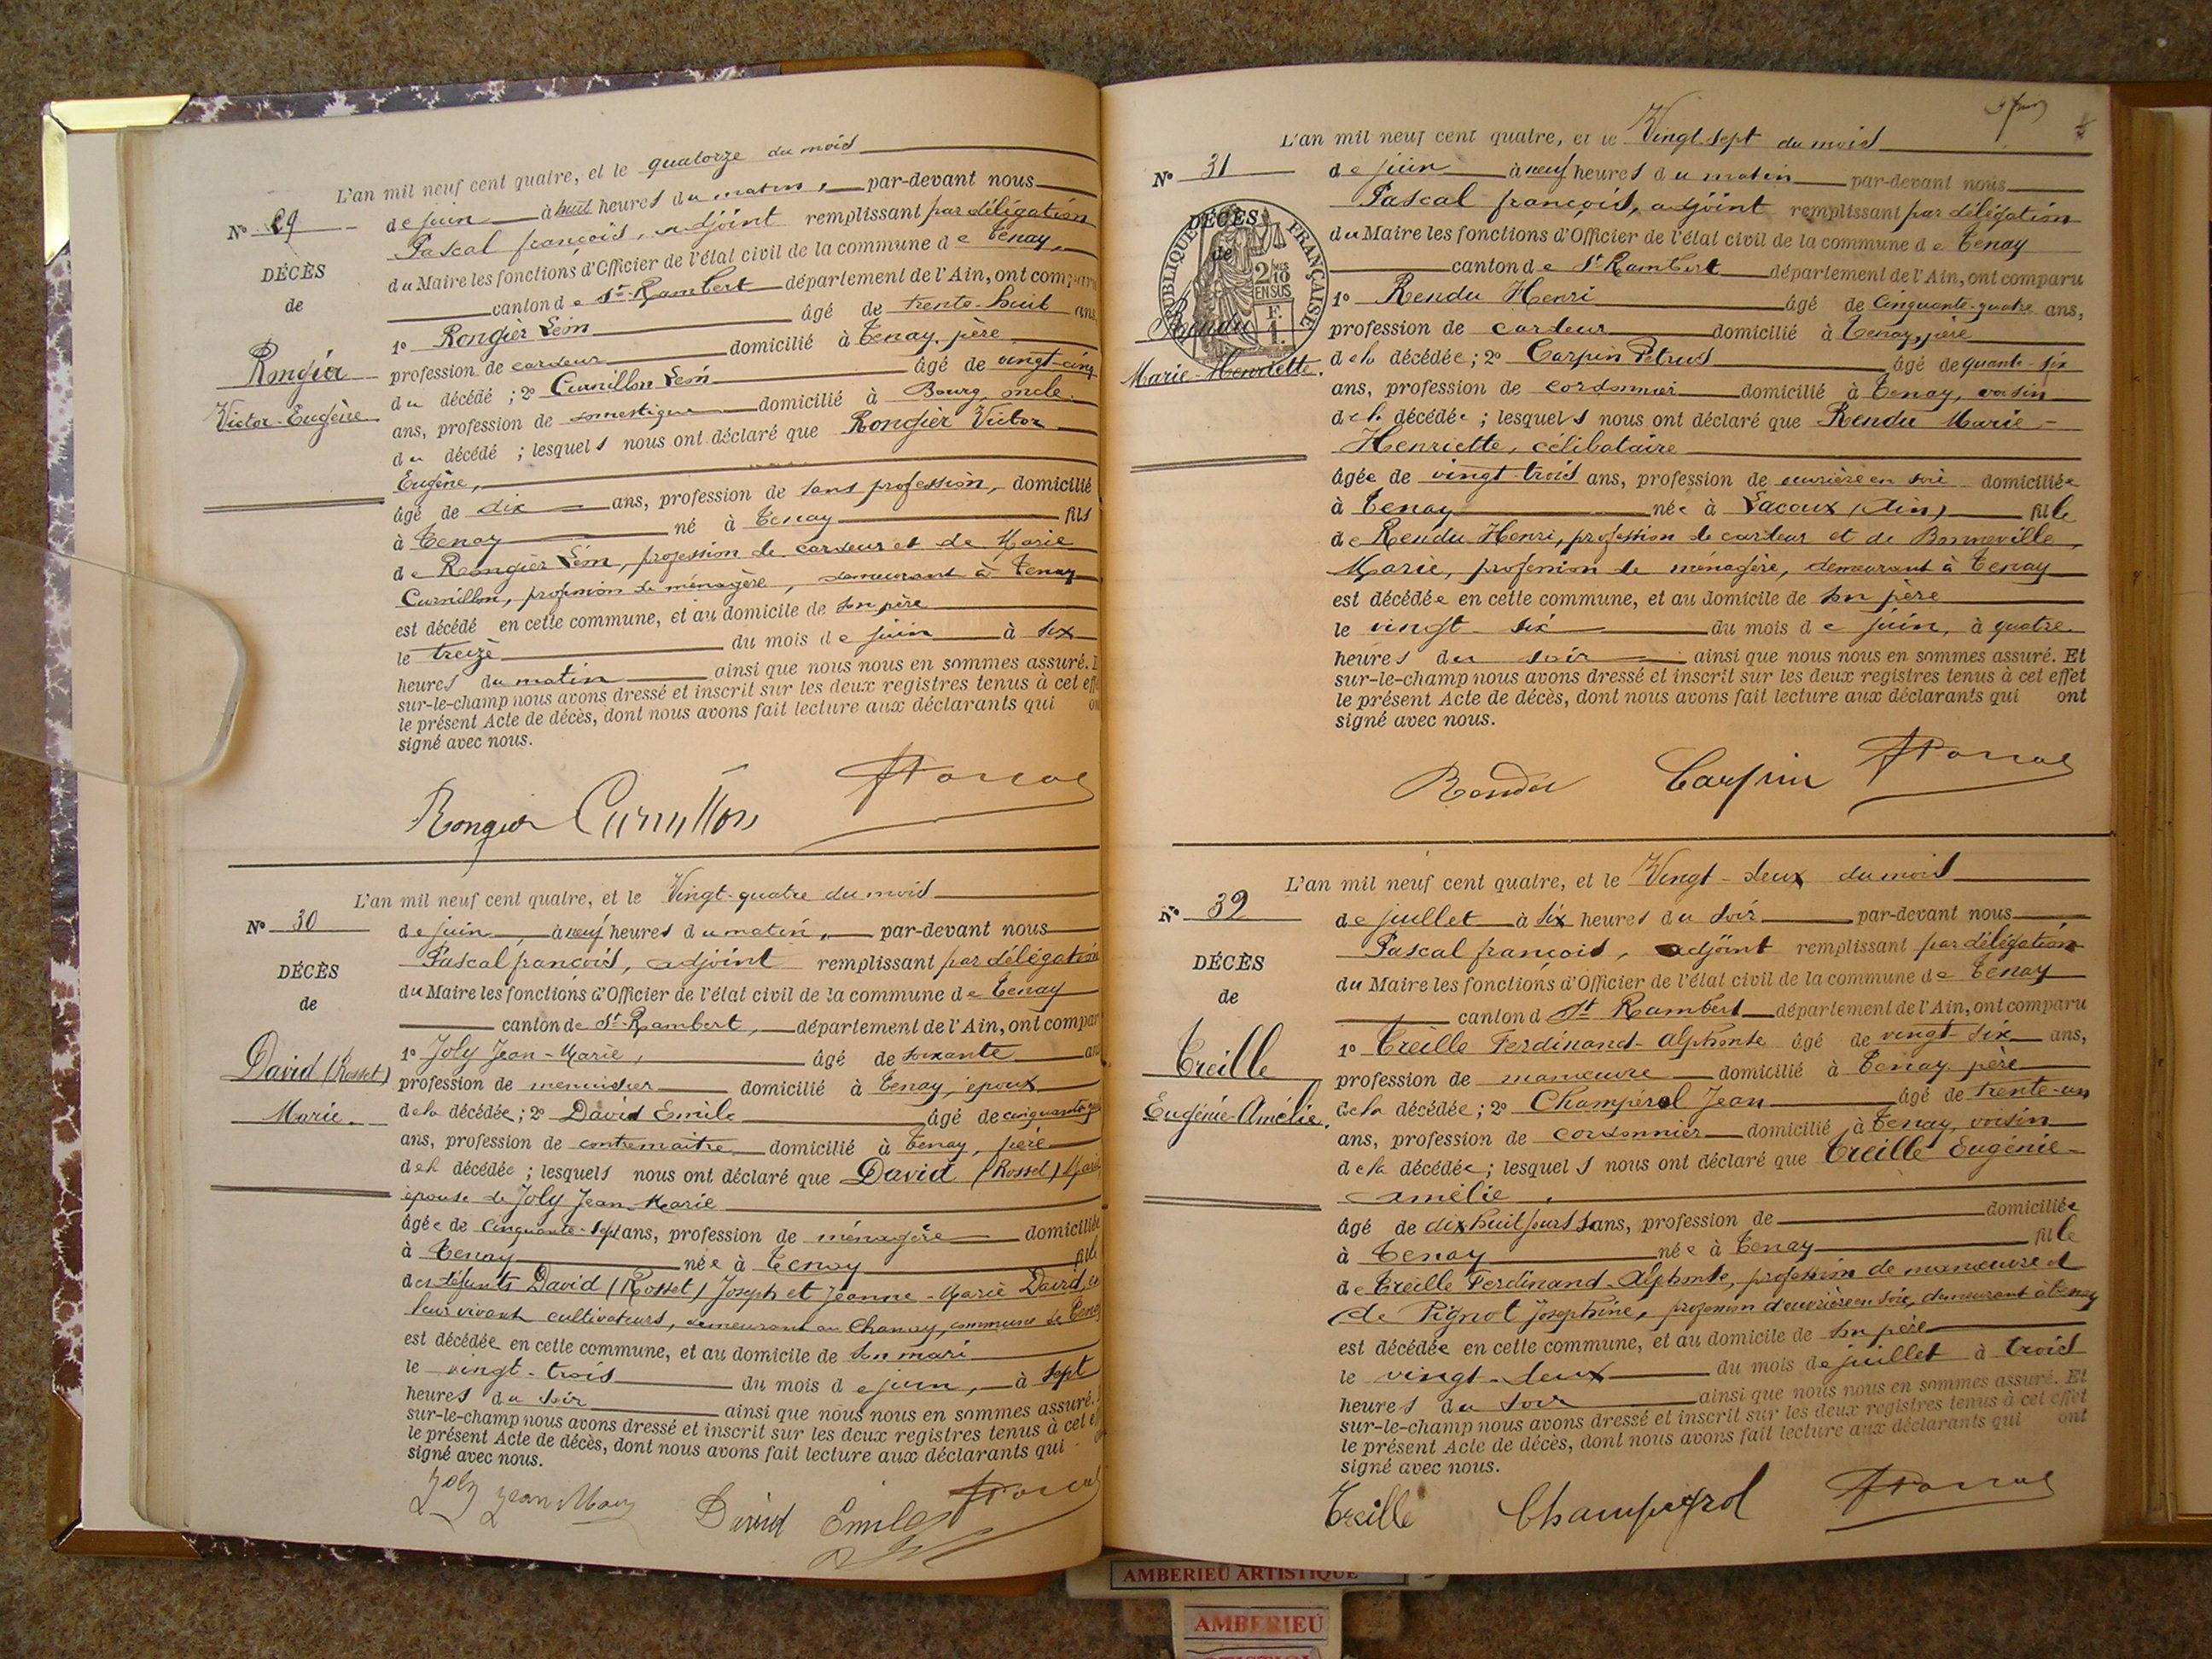 L'an mil neuf cent quatre, et le quatorze du mois
N° 29
de juin à huit heures du matin, par-devant nous
Pascal françois, adjoint remplissant par délégation
du Maire les fonctions d'Officier de l'état civil de la commune de Tenay,
canton de St-Rambert département de l'Ain, ont comparu
DÉCÈS
de
Rongier
Victor-Eugène
1° Rongier Léon âgé de trente-huit ans,
profession de cardeur domicilié à Tenay, père
du décédé ; 2° Curnillon Léon âgé de vingt-cinq
ans, profession de domestique domicilié à Bourg, oncle
du décédé ; lesquels nous ont déclaré que Rongier Victor
Eugène,
âgé de dix ans, profession de sans profession, domicilié
à Tenay né à Tenay fils
de Rongier Léon, profession de cardeur et de Marie
Curnillon, profession de ménagère, demeurant à Tenay
est décédé en cette commune, et au domicile de son père
le treize du mois de juin à six
heures du matin ainsi que nous nous en sommes assuré.
sur-le-champ nous avons dressé et inscrit sur les deux registres tenus à cet
le présent Acte de décès, dont nous avons fait lecture aux déclarants qui
signé avec nous.
Rongier Curnillon FPascal
L'an mil neuf cent quatre, et le Vingt-quatre du mois
N° 30
de juin à neuf heures du matin, par-devant nous
Pascal françois, adjoint remplissant par délégation
du Maire les fonctions d'Officier de l'état civil de la commune de Tenay
canton de St-Rambert, département de l'Ain, ont compar
DÉCÈS
de
David (Rosset)
Marie
1° Joly Jean-Marie, âgé de soixante an
profession de menuisier domicilié à Tenay, époux
de la décédée ; 2° David Emile âgé de
ans, profession de contremaitre domicilié à Tenay, père
de la décédée ; lesquels nous ont déclaré que David (Rosset) Marie
épouse de Joly Jean-Marie
âgée de cinquante-sept ans, profession de ménagère domiciliée
à Tenay née à Tenay fille
des défunts David (Rosset) Joseph et Jeanne-Marie David, de
leur vivant cultivateurs, demeurant au Chanay, commune de Tenay
est décédée en cette commune, et au domicile de son mari
le vingt-trois du mois de juin, à sept
heures du soir ainsi que nous nous en sommes assuré.
sur-le-champ nous avons dressé et inscrit sur les deux registres tenus à cet
le présent Acte de décès, dont nous avons fait lecture aux déclarants qui
signé avec nous.
Joly Jean Mary David Emile FPascal
L'an mil neuf cent quatre, et le Vingt-sept du mois
N° 31
de juin à neuf heures du matin par-devant nous
Pascal françois, adjoint remplissant par délégation
du Maire les fonctions d'Officier de l'état civil de la commune de Tenay
canton de St-Rambert département de l'Ain, ont comparu
DÉCÈS
de
RÉPUBLIQUE FRANÇAISE
2/10 EN SUS
F. 1.
Rendu
Marie-Henriette.
1° Rendu Henri âgé de cinquante-quatre ans,
profession de cardeur domicilié à Tenay, père
de la décédée ; 2° Carpin Petrus âgé de quante-six
ans, profession de cordonnier domicilié à Tenay, voisin
de la décédée ; lesquels nous ont déclaré que Rendu Marie-
Henriette, célibataire
âgée de vingt-trois ans, profession de ouvrière en soie domiciliée
à Tenay née à Lacoux (Ain) fille
de Rendu Henri, profession de cardeur et de Bonneville
Marie, profession de ménagère, demeurant à Tenay
est décédée en cette commune, et au domicile de son père
le vingt-six du mois de juin, à quatre
heures du soir ainsi que nous nous en sommes assuré. Et
sur-le-champ nous avons dressé et inscrit sur les deux registres tenus à cet effet
le présent Acte de décès, dont nous avons fait lecture aux déclarants qui ont
signé avec nous.
Rendu Carpin FPascal
L'an mil neuf cent quatre, et le Vingt-deux du mois
N° 32
de juillet à six heures du soir par-devant nous
Pascal françois, adjoint remplissant par délégation
du Maire les fonctions d'Officier de l'état civil de la commune de Tenay
canton d St Rambert département de l'Ain, ont comparu
DÉCÈS
de
Treille
Eugénie-Amélie.
1° Treille Ferdinand-Alphonse âgé de vingt-six ans,
profession de manœuvre domicilié à Tenay père
de la décédée ; 2° Champérol Jean âgé de trente-un
ans, profession de cordonnier domicilié à Tenay, voisin
de la décédée ; lesquels nous ont déclaré que Treille Eugénie-
Amélie,
âgé de dix huit jours sans, profession de domiciliée
à Tenay née à Tenay fille
de Treille Ferdinand-Alphonse, profession de manœuvre et
de Pignot Joséphine, profession d'ouvrière en soie, demeurant à Tenay
est décédée en cette commune, et au domicile de son père
le vingt-deux du mois de juillet à trois
heures du soir ainsi que nous nous en sommes assuré. Et
sur-le-champ nous avons dressé et inscrit sur les deux registres tenus à cet effet
le présent Acte de décès, dont nous avons fait lecture aux déclarants qui ont
signé avec nous.
Treille Champeyrol FPascal
AMBERIEU ARTISTIQUE
AMBERIEU